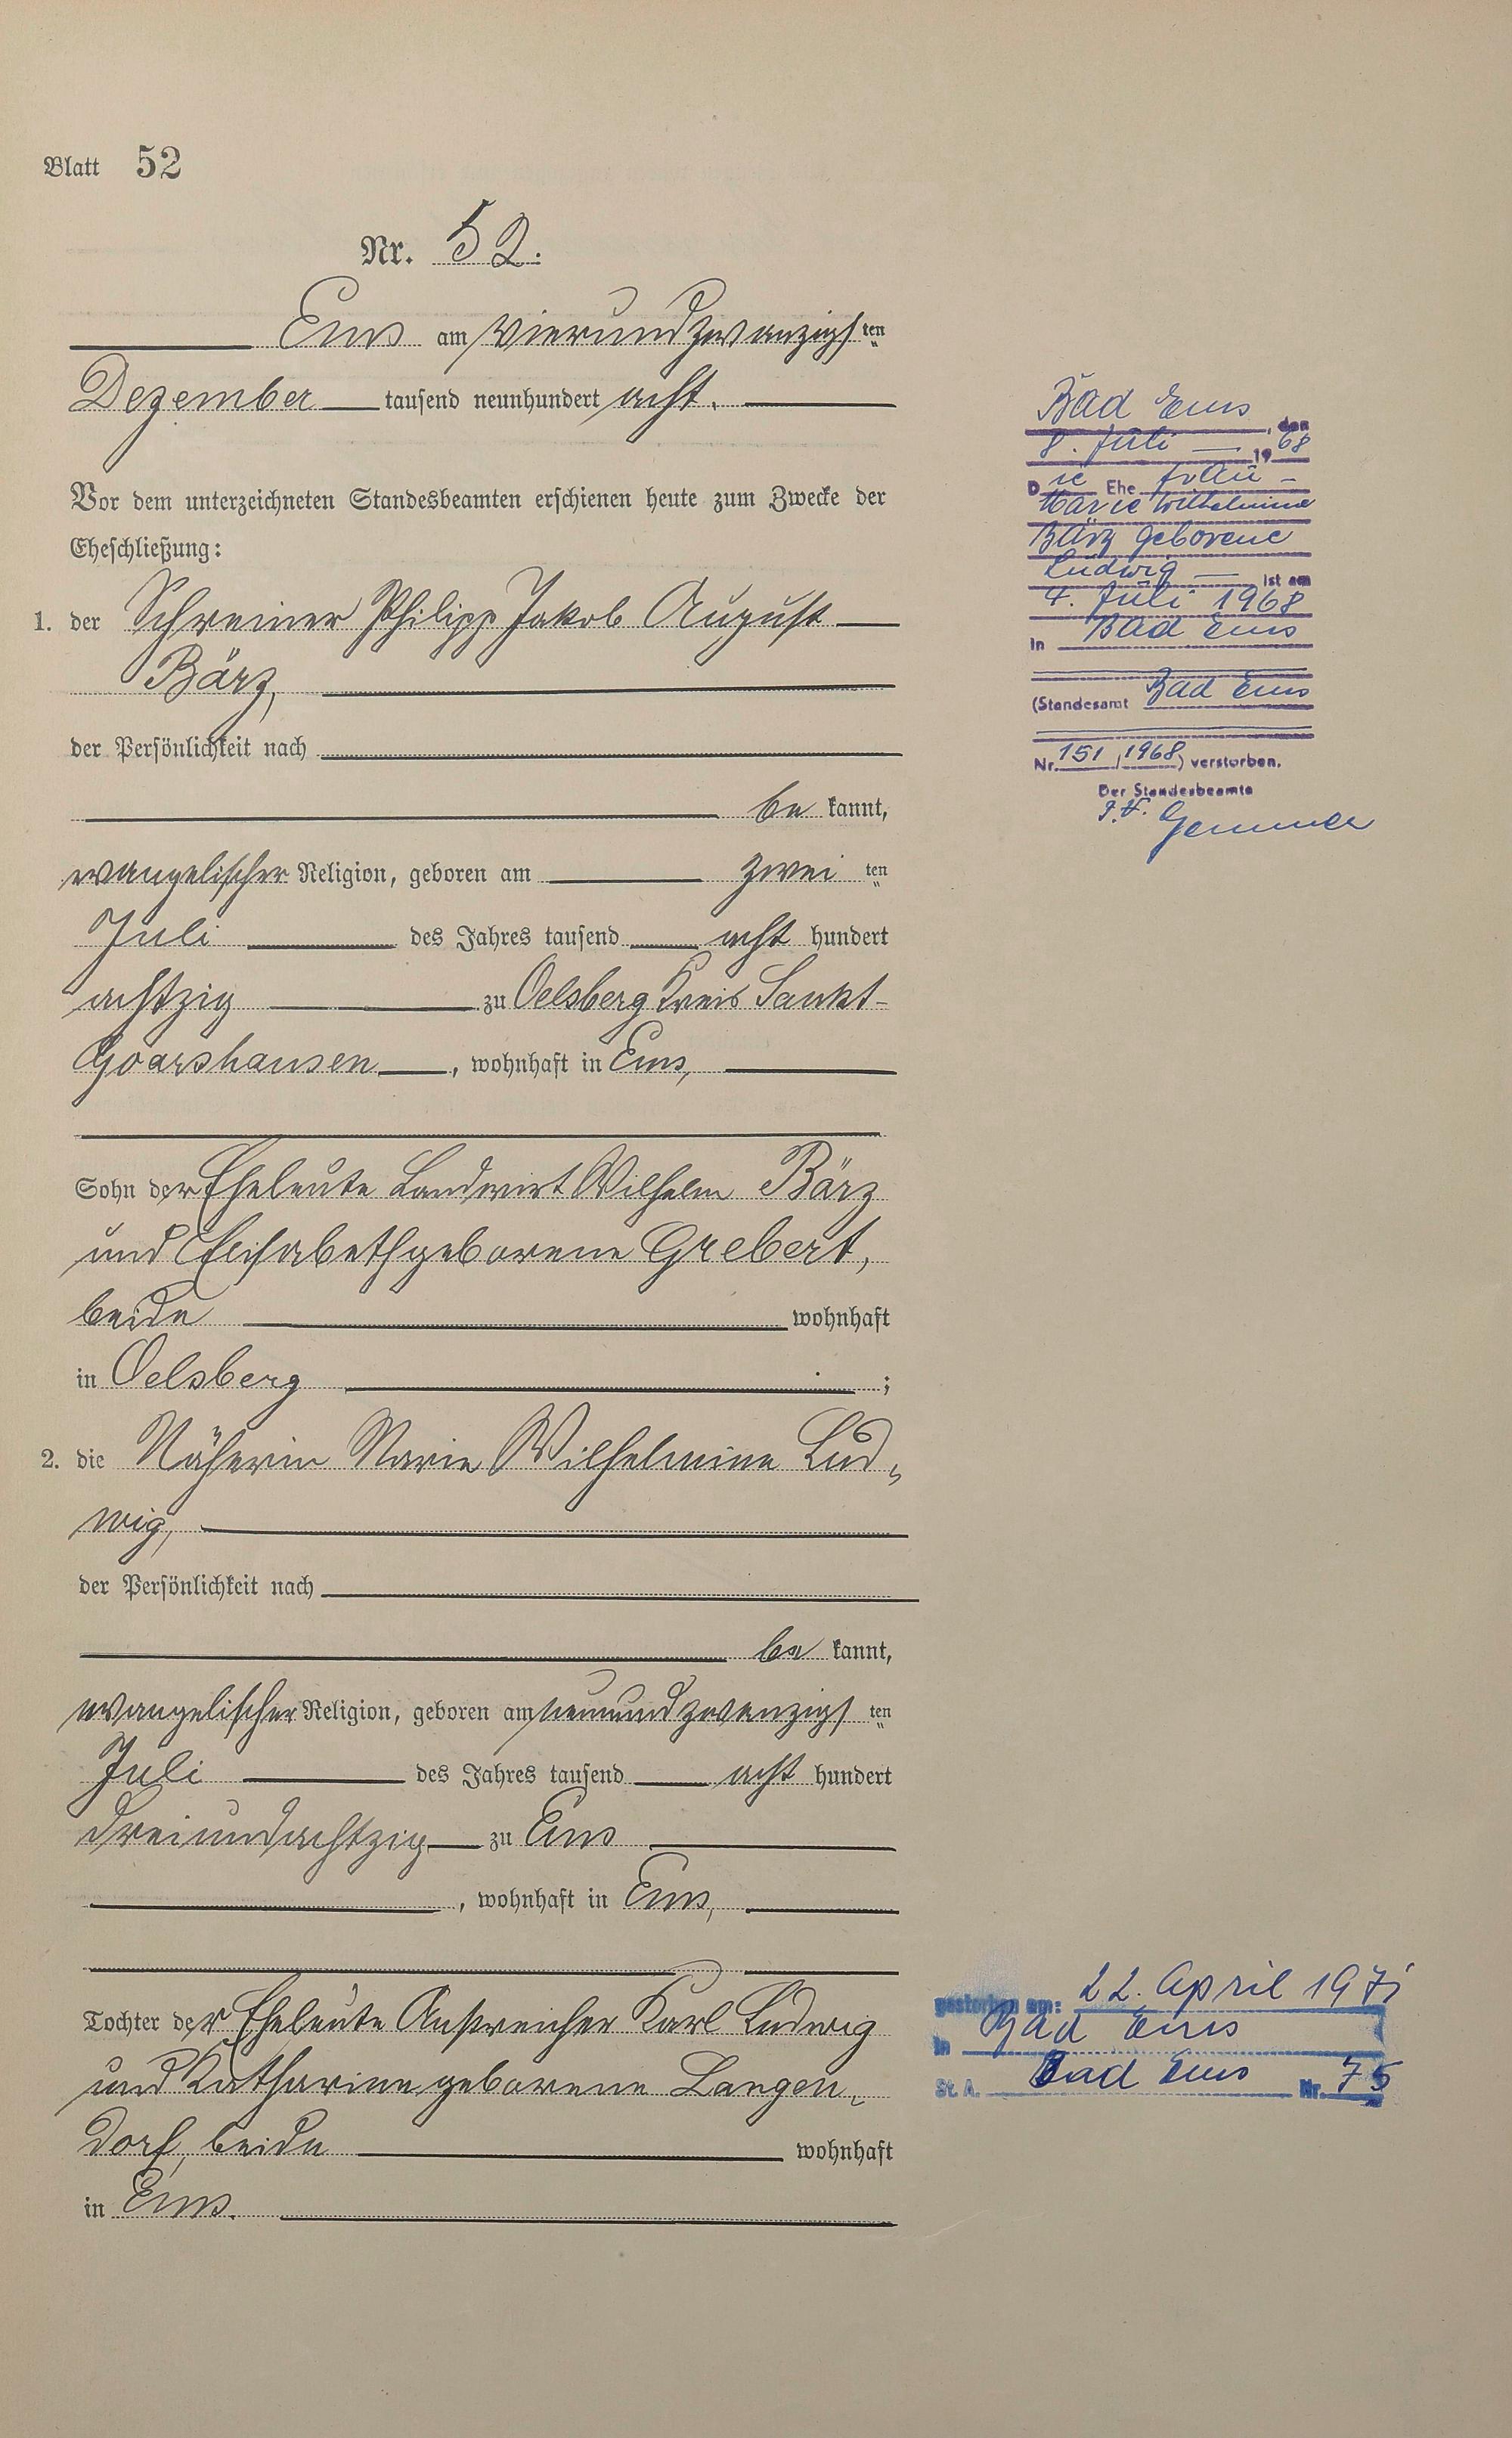 Blatt 52
Nr. 52.
Ems am vierundzwanzigsten
Dezember tausend neunhundert acht.
Vor dem unterzeichneten Standesbeamten erschienen heute zum Zwecke der
Eheschließung:
1. der Schreiner Philipp Jakob August
Bärz,
der Persönlichkeit nach
be kannt,
evangelischer Religion, geboren am zwei ten
Juli des Jahres tausend acht hundert
achtzig zu Oelsberg Kreis Sankt-
Goarshausen, wohnhaft in Ems,
Sohn der Eheleute Landwirt Wilhelm Bärz
und Elisabeth geborene Grebert,
beide wohnhaft
in Oelsberg ;
2. die Näherin Marie Wilhelmine Lud-
wig,
der Persönlichkeit nach
be kannt,
evangelischer Religion, geboren am neunundzwanzigs ten
Juli des Jahres tausend acht hundert
dreiundachtzig zu Ems
, wohnhaft in Ems,
Tochter der Eheleute Anstreicher Karl Ludwig
und Katharine geborene Langen-
dorf, beide wohnhaft
in Ems.
Bad Ems, den
8. Juli 1968
Die Ehefrau -
Marie Wilhelmine
Bärz geborene
Ludwig ist am
4. Juli 1968
in Bad Ems
(Standesamt Bad Ems
Nr. 151/1968) verstorben.
Der Standesbeamte
I.V. Gemmer
gestorben am: 22. April 1971
in Bad Ems
St. A. Bad Ems Nr. 75